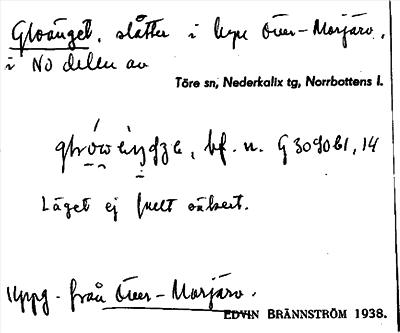 Gloänget, slåtter i byn Över-Morjärv,
i NO delen av
Töre sn, Nederkalix tg, Norrbottens l.
bf. n. G 309061, 14
Läget ej fullt säkert.
Uppg. från Över-Morjärv.
EDVIN BRÄNNSTRÖM 1938.